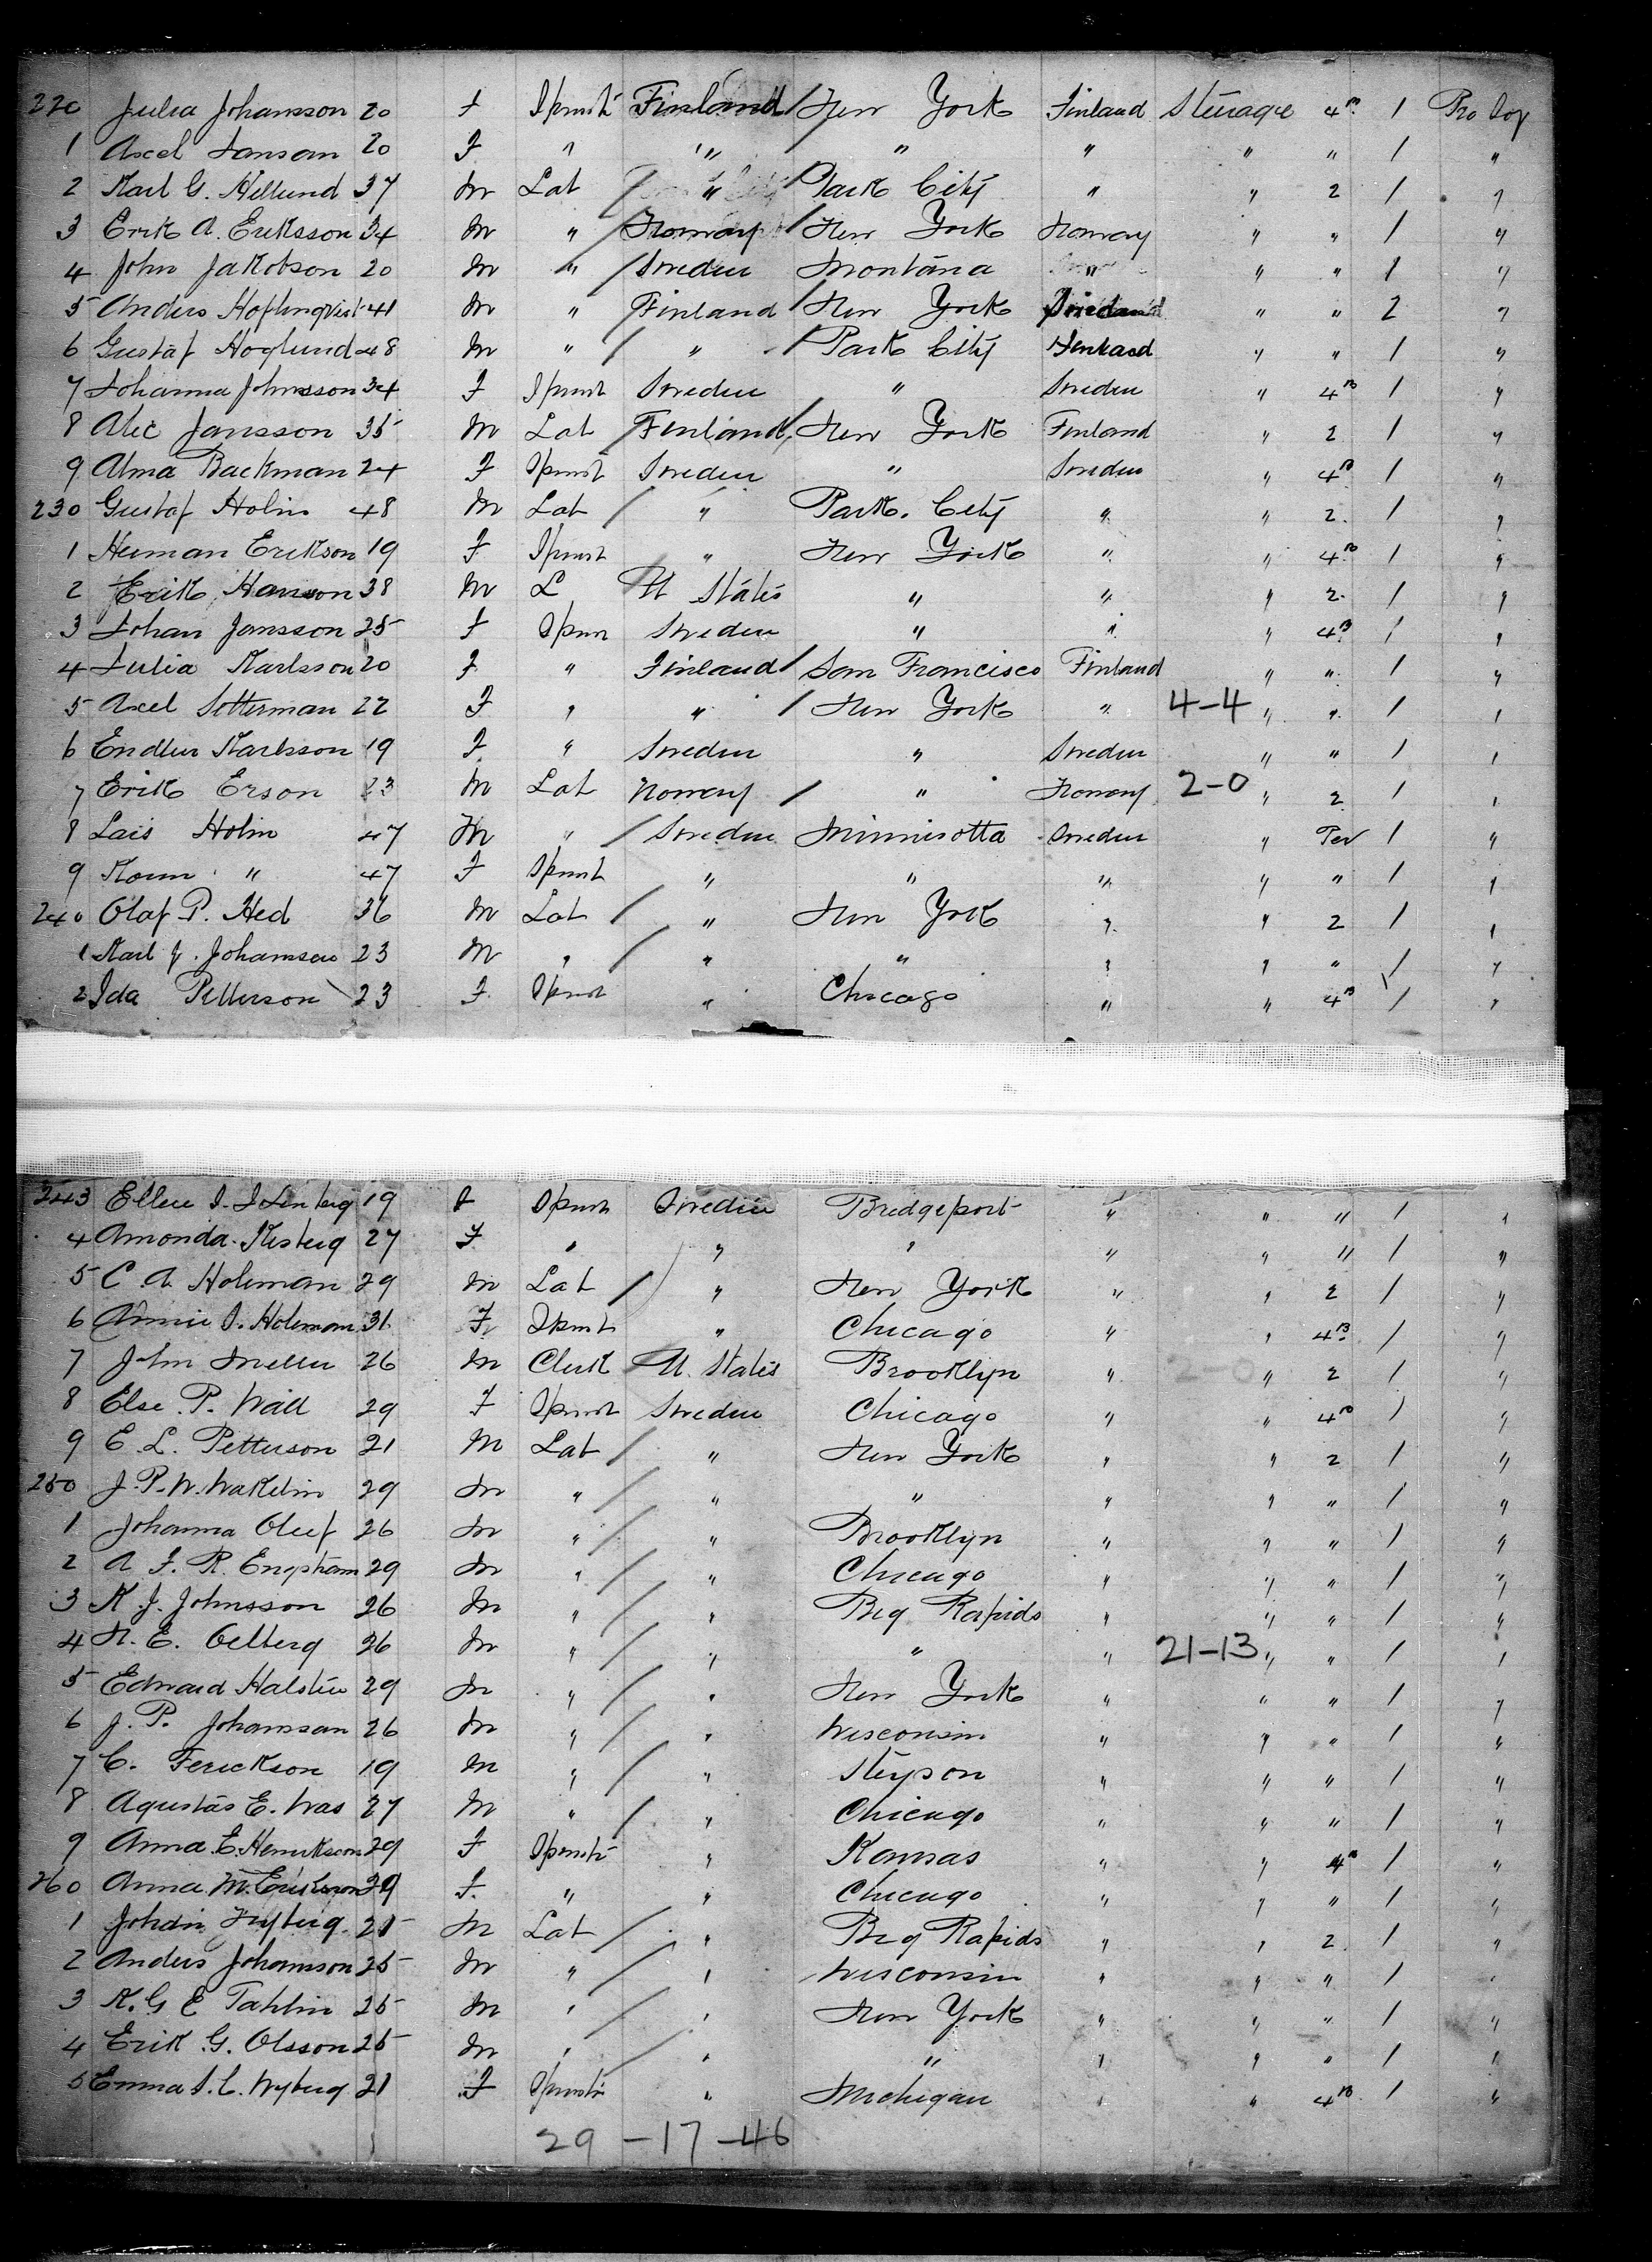 220 Julia Johansson 20 F Spinst Finland / New York Finland Steerage 4B 1 Pro Soj
1 Axel Janson 20 F " " " " " " 1 "
2 Karl G. Hellund 37 M Lab / " / Park City " " 2 1 "
3 Erik A. Eriksson 34 M " / Norway / New York Norway " " 1 "
4 John Jakobson 20 M " / Sweden Montana " " " 1 "
5 Anders 41 M " Finland / New York " " 2 "
6 Gustaf Hoglund 48 M " / " / Park City " " 1 "
7 Johanna Johnsson 34 F Spinst Sweden " Sweden " 4B 1 "
8 Alec Jansson 35 M Lab / Finland / New York Finland " 2 1 "
9 Alma Backman 24 F Spinst Sweden " Sweden " 4B 1 "
230 Gustaf Holm 48 M Lab / " Park City " " 2 1 "
1 Herman Erikson 19 F Spinst " New York " " 4B 1 "
2 Erik Hanson 38 M L U States " " " 2 1 "
3 Johan Jansson 25 F Spin Sweden " " " 4B 1 "
4 Julia Karlsson 20 F " Finland / San Francisco Finland " " 1 "
5 Axel Setterman 22 F " " / New York " 4-4 " " 1 "
6 Karlsson 19 F " Sweden " Sweden " " 1 "
7 Erik Erson 23 M Lab Norway / " Norway 2-0 " 2 1 "
8 Lars Holm 47 M " / Sweden Minnisotta Sweden " 1 "
9 " 47 F Spinst " " " " " 1 "
240 Olaf P. Hed 36 M Lab / " New York " " 2 1 "
1 Karl J. Johansson 23 M " / " " " " " 1 "
2 Ida Petterson 23 F Spinst " Chicago " " 4B 1 "
243 Ellen 19 F Spinst Sweden Bridgeport " " " 1 "
4 Amonda 27 F " " " " " " 1 "
5 C A Holeman 29 M Lab / " New York " " 2 1 "
6 Annie S. Holeman 31 F Spinst " Chicago " " 4B 1 "
7 John 26 M Clerk U. States Brooklyn " " 2 1 "
8 Else P. Wall 29 F Spinst Sweden Chicago " " 4B 1 "
9 E L. Petterson 21 M Lab / " New York " " 2 1 "
250 J. P. W. Wakelin 29 M " / " " " " " 1 "
1 Johanna Oluf 26 M " / " Brooklyn " " " 1 "
2 A F. R. Engstrom 29 M " / " Chicago " " " 1 "
3 K J. Johnsson 26 M " / " Big Rapids " " " 1 "
4 N. E. Oelberg 26 M " / " " " 21-13 " " 1 "
5 Edward Halstin 29 M " / " New York " " " 1 "
6 J. P. Johansan 26 M " / " Wisconsin " " " 1 "
7 C. Ferickson 19 M " / " " " " 1 "
8 Agustas E. Was 27 M " / " Chicago " " " 1 "
9 Anna E. Henrikson 29 F Spinst " Kansas " " 4B 1 "
260 Anna M. Erikson 29 F. " " Chicago " " " 1 "
1 Johan 21 M Lab / " Big Rapids " " 2 1 "
2 Anders Johansson 25 M " / " Wisconsin " " " 1 "
3 K. G E Tahlin 25 M " / " New York " " " 1 "
4 Erik G. Olsson 25 M " / " " " " " 1 "
5 Emma S. C. Nyberg 21 F Spinst " Michigan " " 4B 1 "
29 - 17 - 46